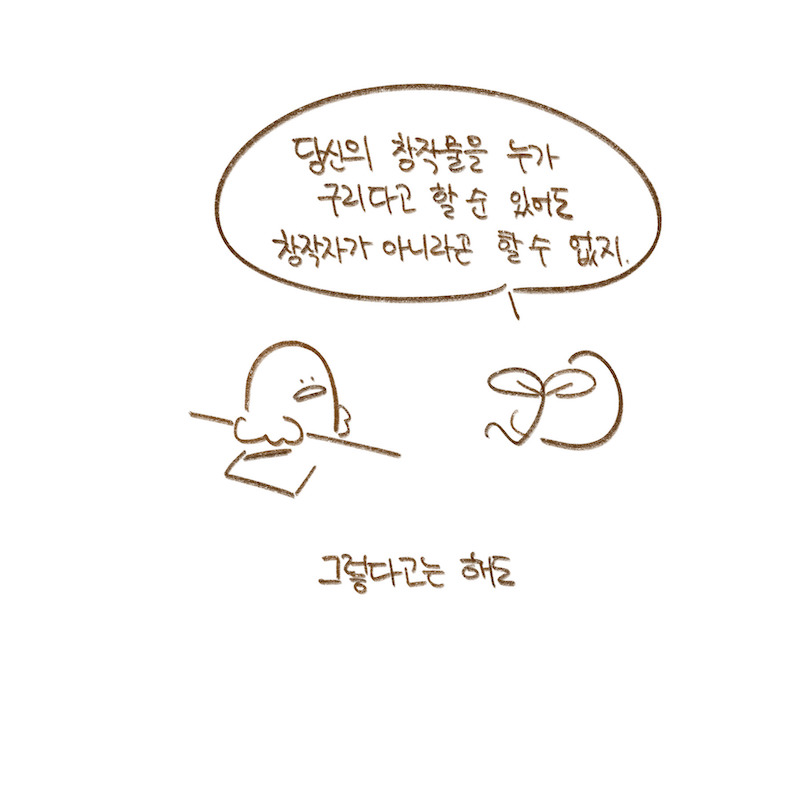 당신의 창작물을 누가
구리다고 할 순 있어도
창작자가 아니라곤 할 수 없지.
그렇다고는 해도